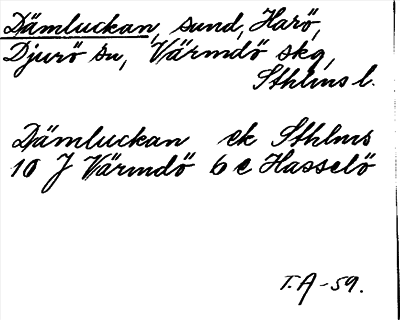 Dämluckan, sund, Harö,
Djurö sn, Värmdö skg,
Sthlms l.
Dämluckan ek Sthlms
10 J Värmdö 6 e Hasselö
T.A-59.